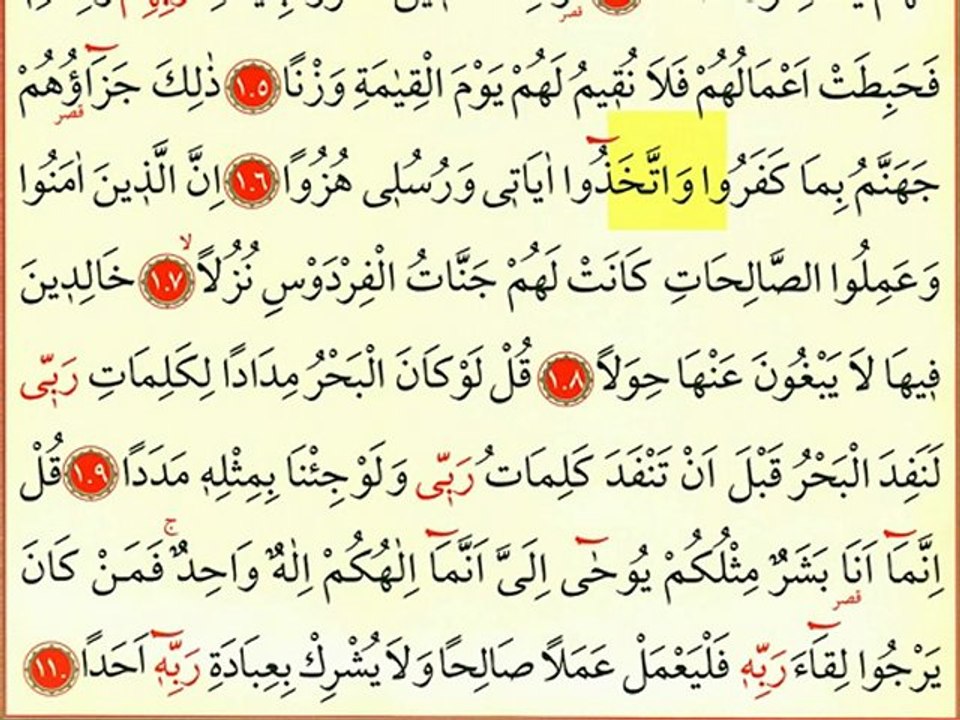 فَحَبِطَتْ اَعْمَالُهُمْ فَلَا نُقٖيمُ لَهُمْ يَوْمَ الْقِيٰمَةِ وَزْنًا ١٠٥ ذٰلِكَ جَزَٓاؤُ۬هُمْ
قصر
جَهَنَّمُ بِمَا كَفَرُوا وَاتَّخَذُٓوا اٰيَاتٖى وَرُسُلٖى هُزُوًا ١٠٦ اِنَّ الَّذٖينَ اٰمَنُوا
وَعَمِلُوا الصَّالِحَاتِ كَانَتْ لَهُمْ جَنَّاتُ الْفِرْدَوْسِ نُزُلًا ۙ ١٠٧ خَالِدٖينَ
فٖيهَا لَا يَبْغُونَ عَنْهَا حِوَلًا ١٠٨ قُلْ لَوْ كَانَ الْبَحْرُ مِدَادًا لِكَلِمَاتِ رَبّٖى
لَنَفِدَ الْبَحْرُ قَبْلَ اَنْ تَنْفَدَ كَلِمَاتُ رَبّٖى وَلَوْ جِئْنَا بِمِثْلِهٖ مَدَدًا ١٠٩ قُلْ
اِنَّمَٓا اَنَا بَشَرٌ مِثْلُكُمْ يُوحٰٓى اِلَىَّ اَنَّمَٓا اِلٰهُكُمْ اِلٰهٌ وَاحِدٌ ۚ فَمَنْ كَانَ
قصر
يَرْجُوا لِقَٓاءَ رَبِّهٖ فَلْيَعْمَلْ عَمَلًا صَالِحًا وَلَا يُشْرِكْ بِعِبَادَةِ رَبِّهٖٓ اَحَدًا ١١٠